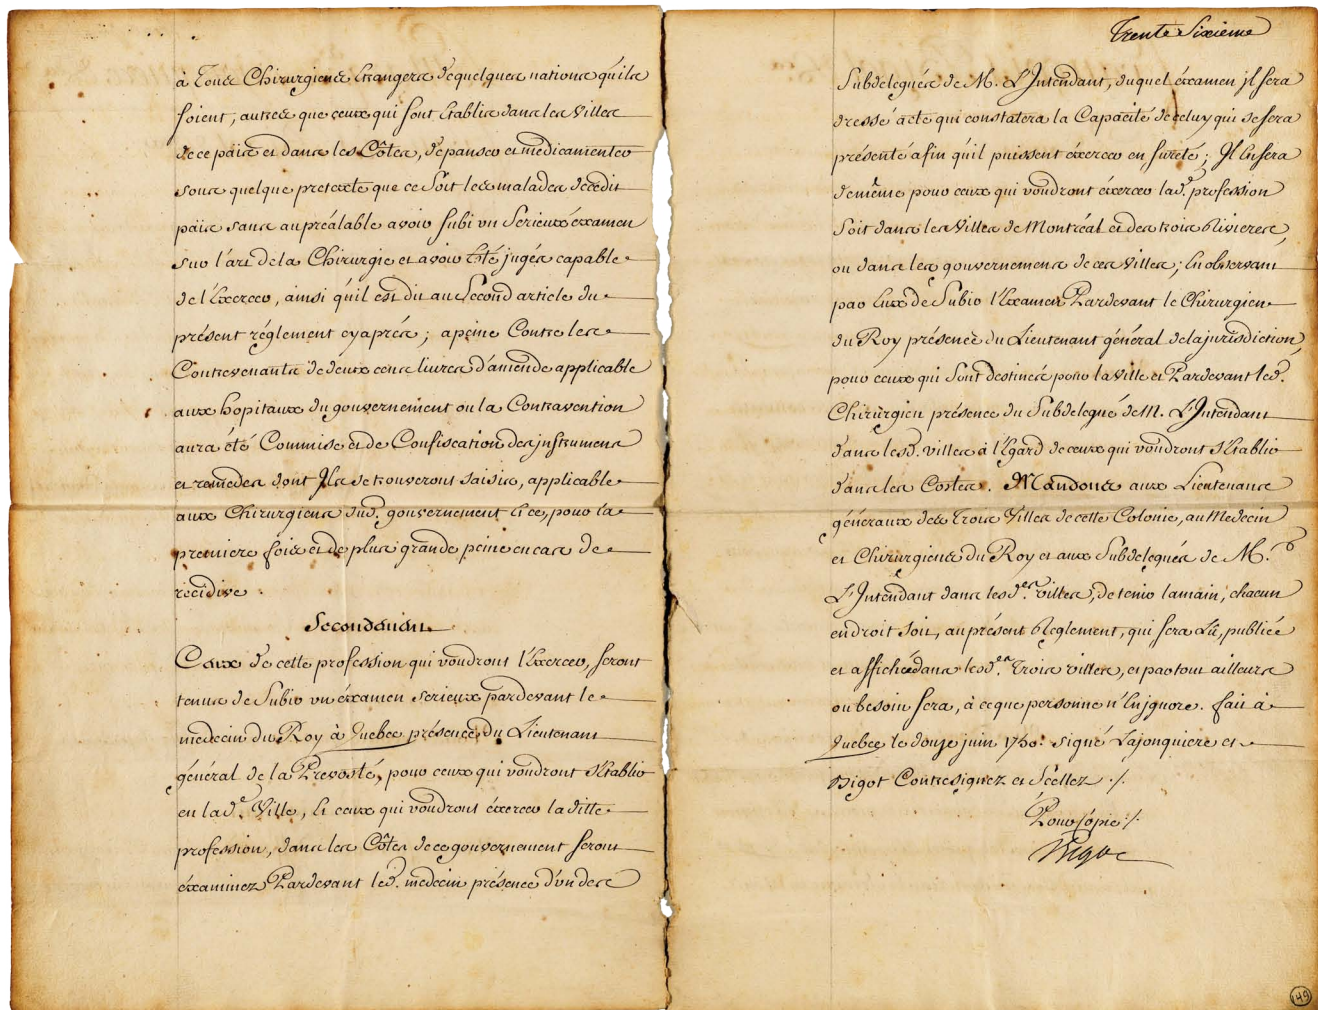 à Tous Chirurgiens Etrangers de quelques nations qu'ils
soient, autres que ceux qui sont Etablis dans les Villes
de ce païs et dans les Côtes, de panser et médicamenter
sous quelque pretexte que ce Soit les malades de cedit
païs sans au préalable avoir subi un Serieux éxamen
sur l'art de la Chirurgie et avoir Eté jugés capable
de l'Exercer, ainsi qu'il est dit au Second article du
présent réglement cy aprés; a peine Contre les
Contrevenants de deux cens livres d'amende applicable
aux hopitaux du gouvernement ou la Contravention
aura été Commise et de Confiscation des instrumens
et remedes dont Ils se trouveront saisis, applicable
aux Chirurgiens dud. gouvernement Et ce, pour la
premiere fois et de plus grande peine en cas de
récidive.
Secondement
Ceux de cette profession qui voudront l'Exercer, seront
tenus de Subir un éxamen serieux pardevant le
médecin du Roy à Quebec présence du Lieutenant
général de la Prevosté, pour ceux qui voudront s'Etablir
en lad.e Ville, Et ceux qui voudront éxercer la ditte
profession, dans les Côtes de ce gouvernement seront
éxaminez Pardevant led. medecin présence d'un des
Trente Sixieme
Subdelegués de M. L'Intendant, duquel éxamen il sera
dressé acte qui constatera la Capacité de celuy qui se sera
présenté afin qu'il puissent éxercer en sureté; Il En sera
de même pour ceux qui voudront éxercer lad.e profession
Soit dans les Villes de Montréal et des trois Rivieres,
ou dans les gouvernemens de ces Villes; En observant
par Eux de Subir l'Examen Pardevant le Chirurgien
du Roy présence du Lieutenant général de la jurisdiction,
pour ceux qui Sont destinés pour la Ville et Pardevant led.
Chirurgien présence du Subdelegué de M. L'Intendant
dans lesd. villes à l'Egard de ceux qui voudront s'Etablir
dans les Costes. Mandons aux Lieutenans
généraux des Trois Villes de cette Colonie, au Medecin
et Chirurgiens du Roy et aux Subdelegués de M.r
L'Intendant dans lesd.es villes, de tenir la main, chacun
en droit soit, au présent Reglement, qui sera Lu, publiée
et affichée dans lesd.es Trois villes, et partout ailleurs
ou besoin sera, à ce que personne n'En ignore. fait à
Quebec le douze juin 1750. signé Lajonquiere et
Bigot Contresignez et Scellez ./.
Pour Copie ./.
Bigot
149